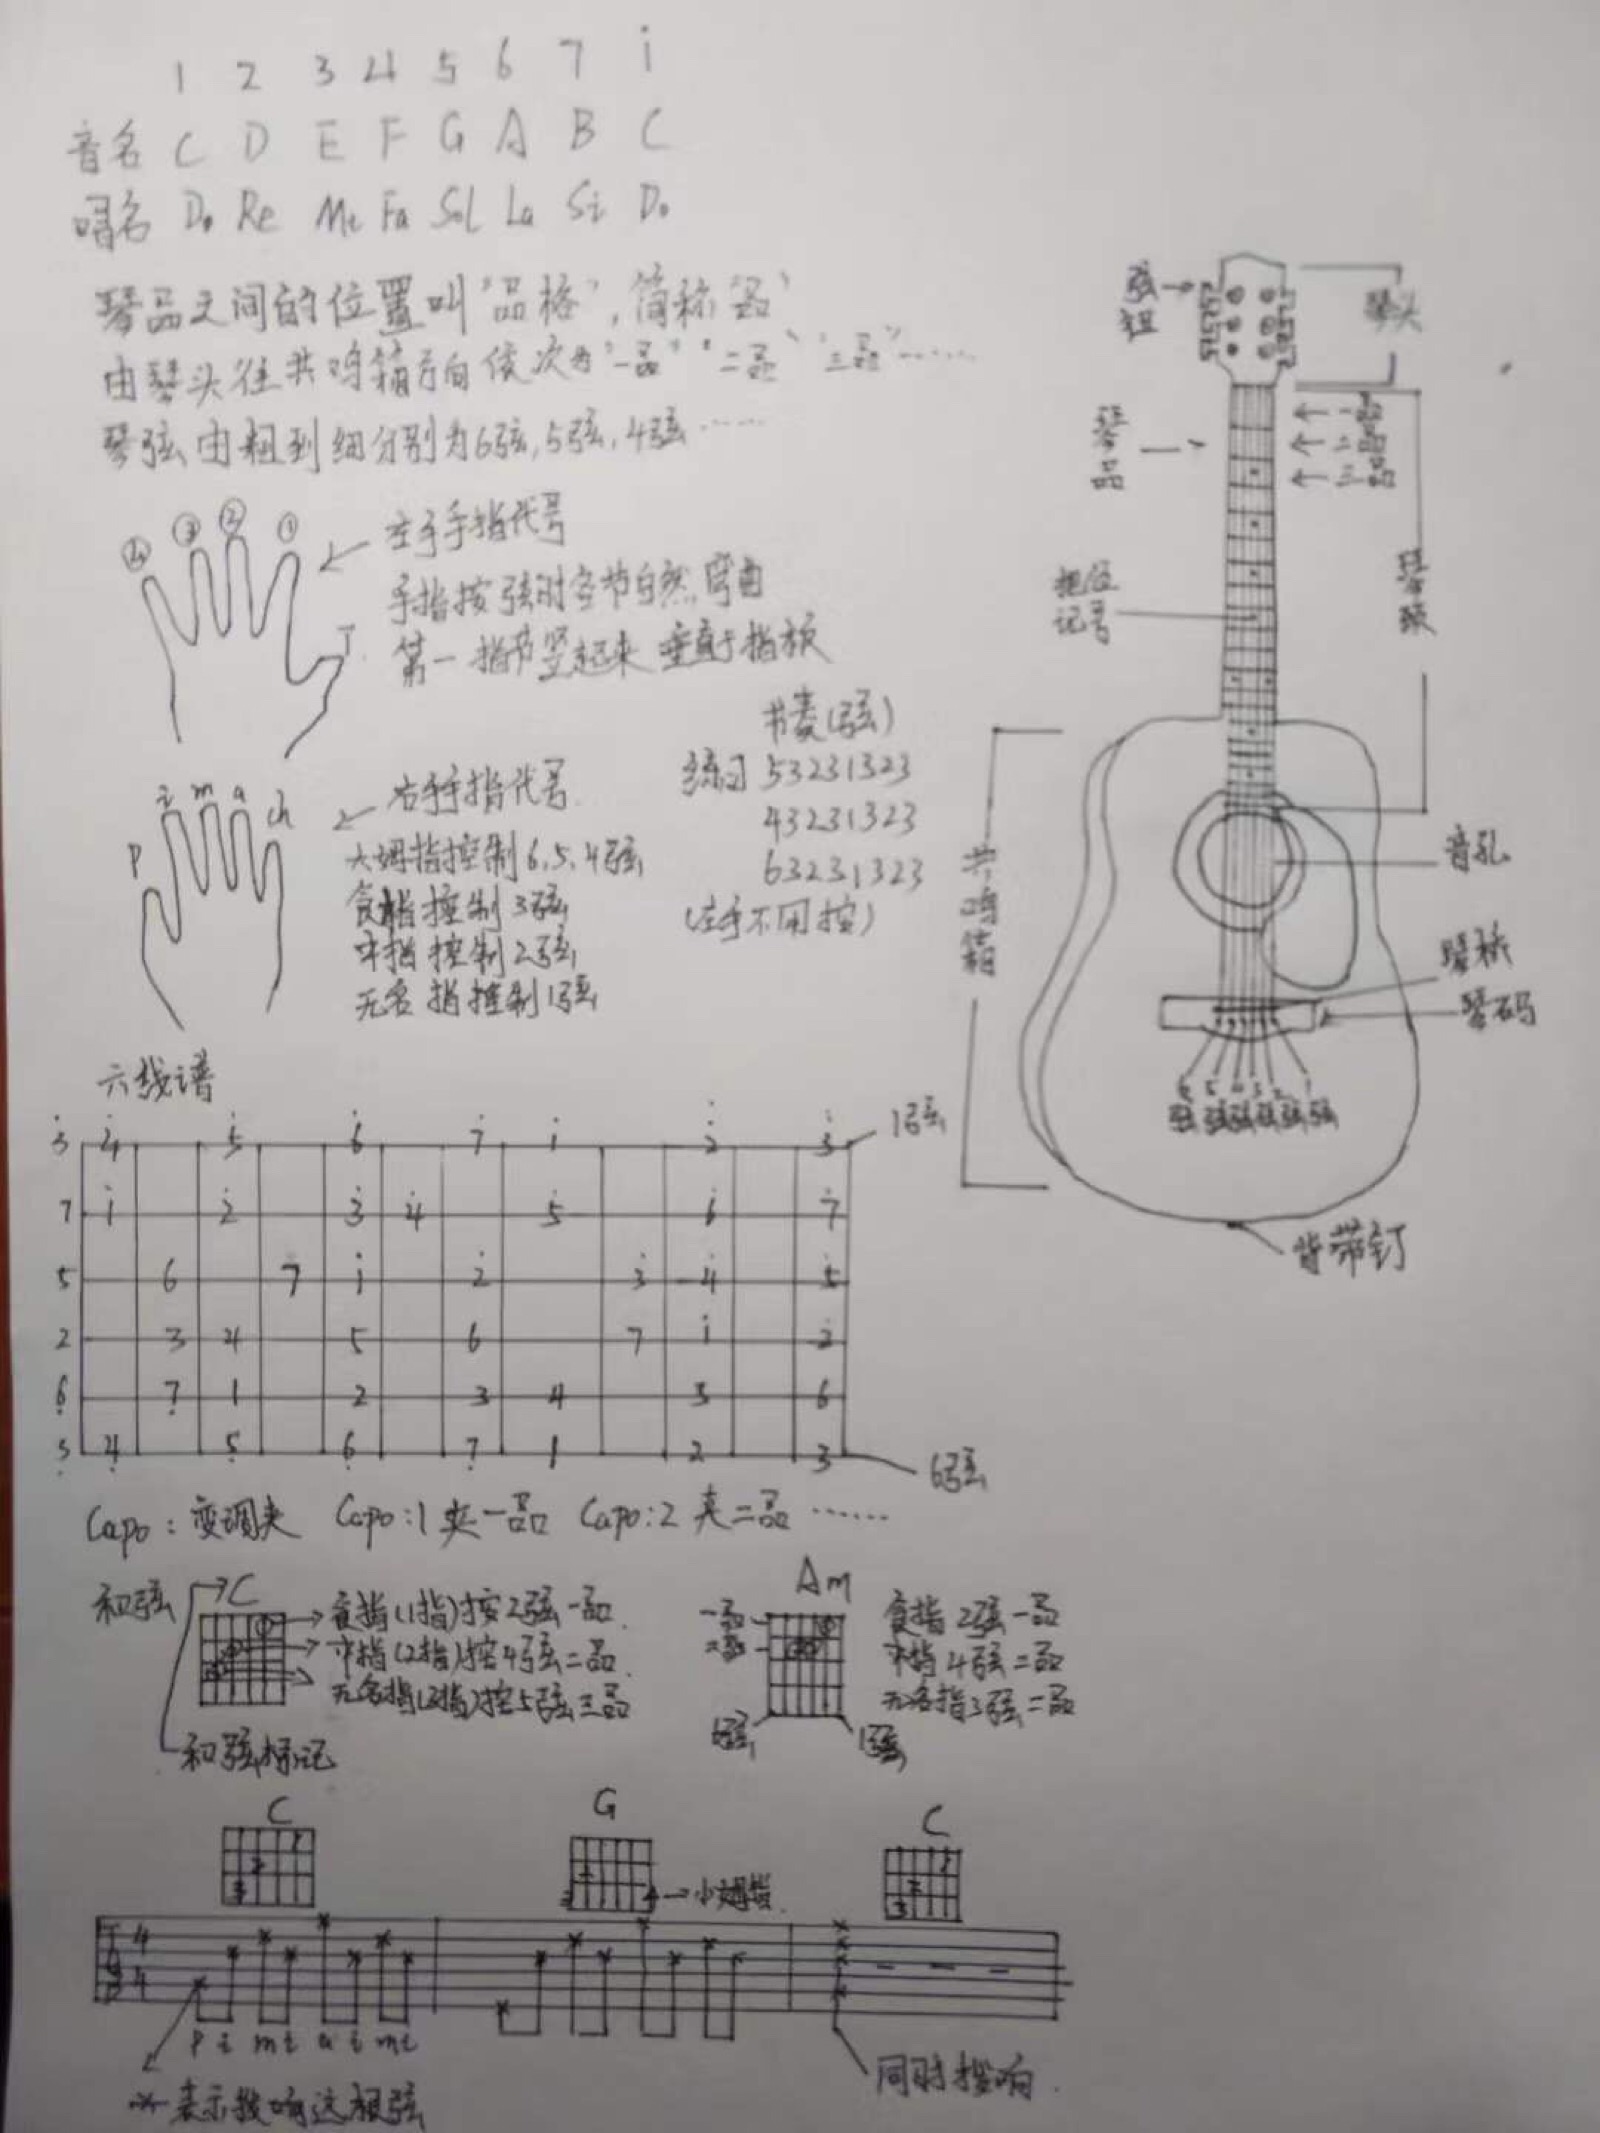 1 2 3 4 5 6 7 i
音名 C D E F G A B C
唱名 Do Re Mi Fa Sol La Si Do
琴品之间的位置叫“品格”,简称“品”
由琴头往共鸣箱方向依次为“一品”“二品”“三品”……
琴弦由粗到细分别为6弦,5弦,4弦……
④ ③ ② ① T
左手手指代号
手指按弦时各节自然弯曲
第一指节竖起来 垂直于指板
P i m a ch
右手手指代号
大姆指控制6,5,4弦
食指控制3弦
中指控制2弦
无名指控制1弦
节奏(弦)
练习 53231323
43231323
63231323
(左手不用按)
弦钮
琴头
琴品
一品
二品
三品
把位记号
琴颈
共鸣箱
音孔
琴桥
琴码
6弦 5弦 4弦 3弦 2弦 1弦
背带钉
六线谱
3 4 5 6 7 i 2 3 1弦
7 i 2 3 4 5 6 7
5 6 7 i 2 3 4 5
2 3 4 5 6 7 i 2
6 7 1 2 3 4 5 6
3 4 5 6 7 1 2 3 6弦
Capo:变调夹 Capo:1夹一品 Capo:2夹二品……
和弦 C
食指(1指)按2弦一品
中指(2指)按4弦二品
无名指(3指)按5弦三品
和弦标记
Am
一品
二品
6弦 1弦
食指2弦一品
中指4弦二品
无名指3弦二品
C G C
1 2 3
2 3 4→小姆指
1 2 3
T A B 4 4
P i m i a i m i
同时拨响
×表示拨响这根弦